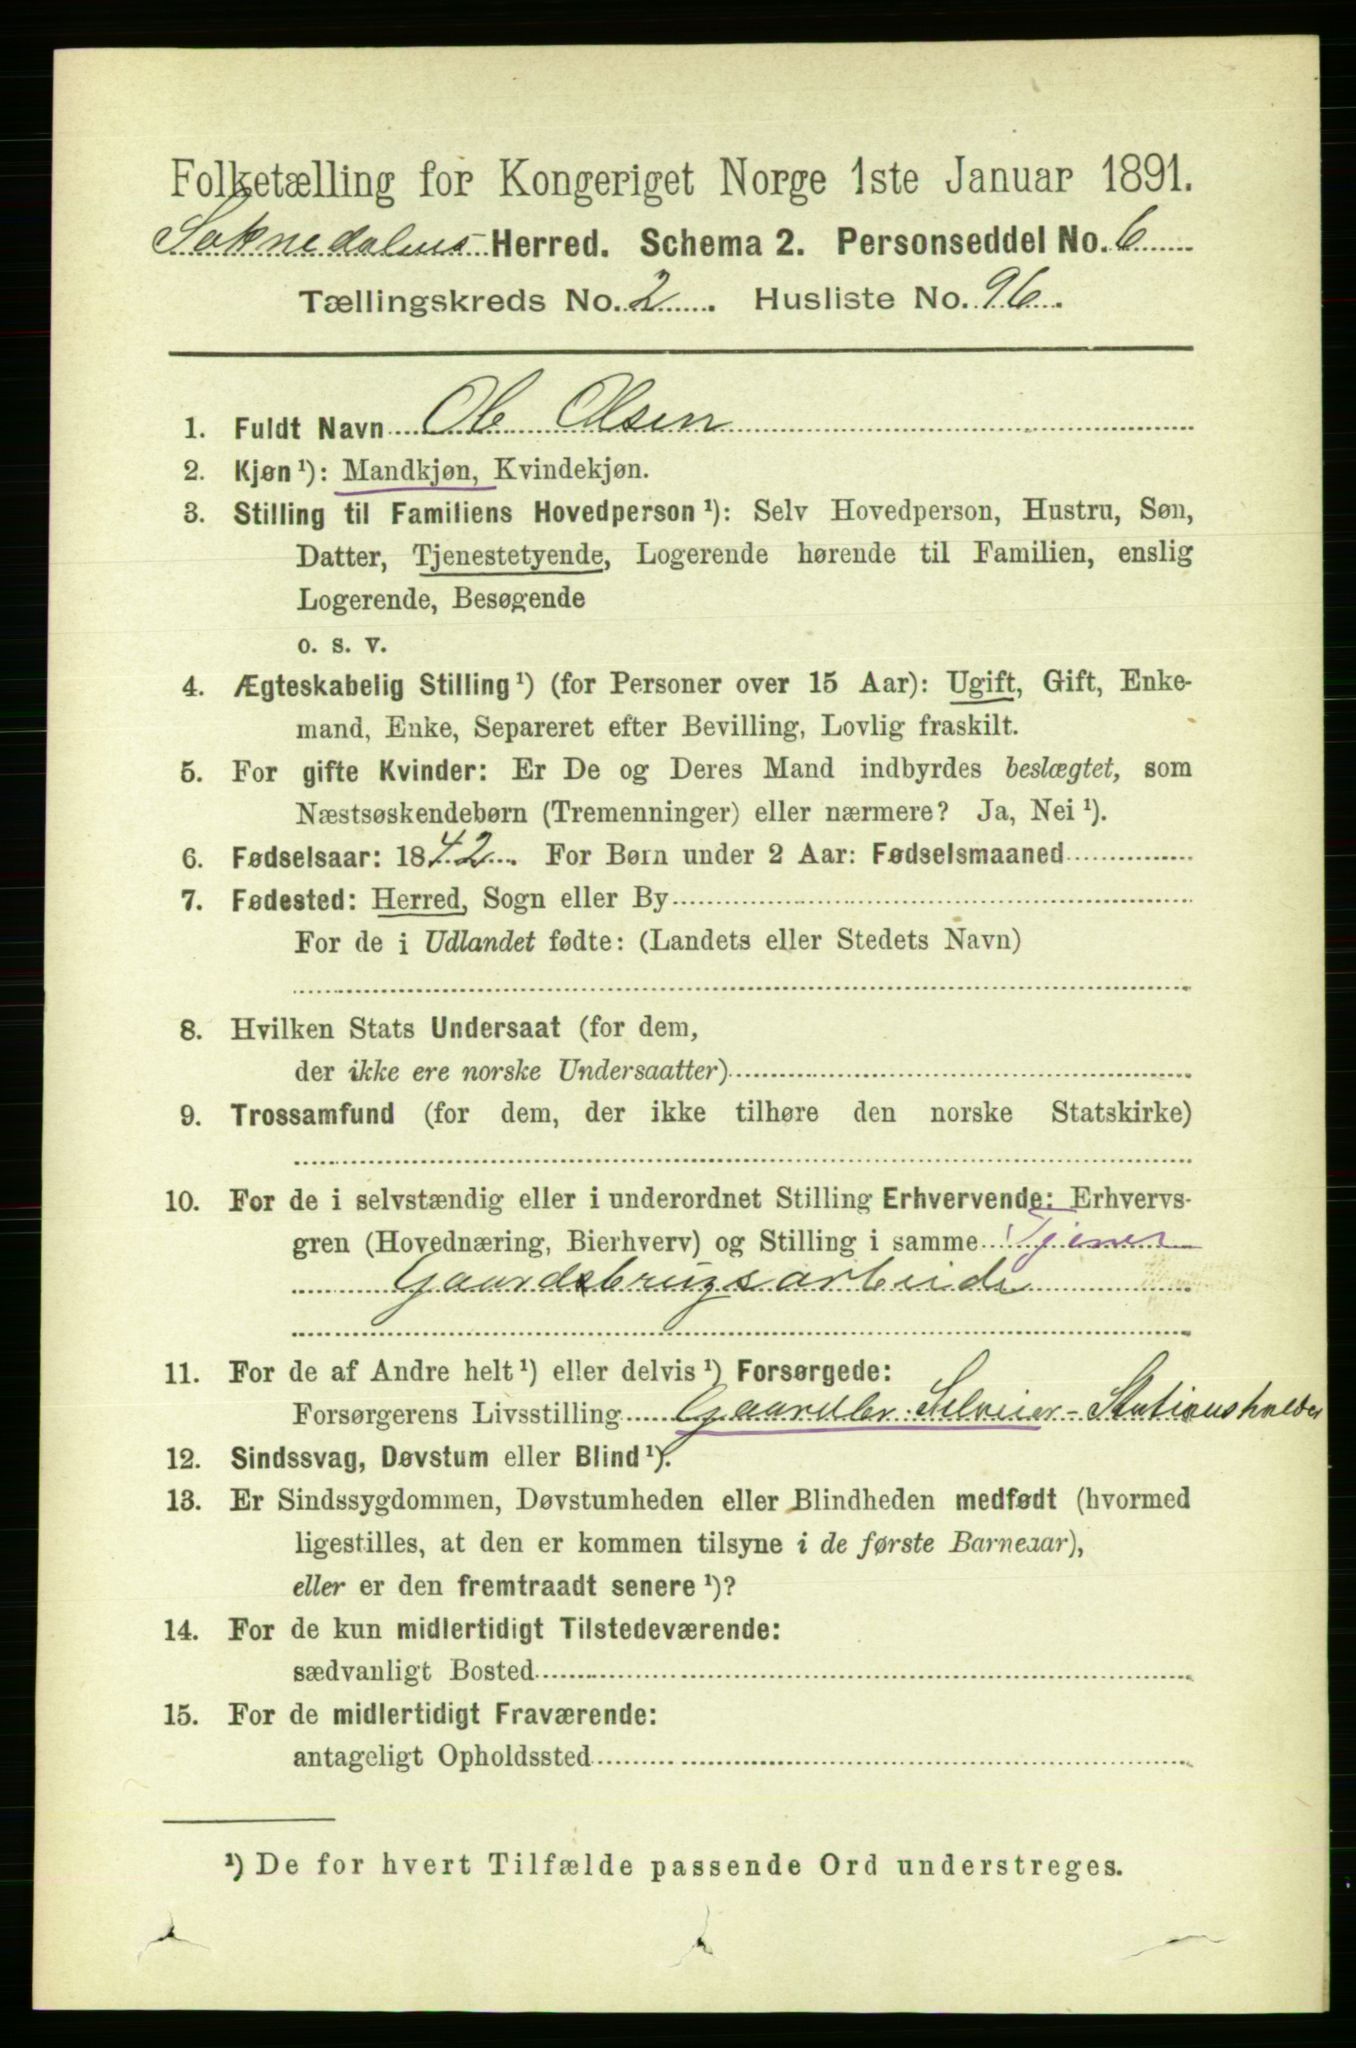 Folketælling for Kongeriget Norge 1ste Januar 1891.
Soknedalens Herred. Schema 2. Personseddel No. 6
Tællingskreds No. 2. Husliste No. 96.
1. Fuldt Navn Ole Olsen
2. Kjøn ¹): Mandkjøn, Kvindekjøn.
3. Stilling til Familiens Hovedperson ¹): Selv Hovedperson, Hustru, Søn,
Datter, Tjenestetyende, Logerende hørende til Familien, enslig
Logerende, Besøgende
o. s. v.
4. Ægteskabelig Stilling ¹) (for Personer over 15 Aar): Ugift, Gift, Enke-
mand, Enke, Separeret efter Bevilling, Lovlig fraskilt.
5. For gifte Kvinder: Er De og Deres Mand indbyrdes beslægtet, som
Næstsøskendebørn (Tremenninger) eller nærmere? Ja, Nei ¹).
6. Fødselsaar: 1842. For Børn under 2 Aar: Fødselsmaaned
7. Fødested: Herred, Sogn eller By
For de i Udlandet fødte: (Landets eller Stedets Navn)
8. Hvilken Stats Undersaat (for dem,
der ikke ere norske Undersaatter)
9. Trossamfund (for dem, der ikke tilhøre den norske Statskirke)
10. For de i selvstændig eller i underordnet Stilling Erhvervende: Erhvervs-
gren (Hovednæring, Bierhverv) og Stilling i samme Tjener
Gaardsbrugsarbeide
11. For de af Andre helt ¹) eller delvis ¹) Forsørgede:
Forsørgerens Livsstilling Gaardbr. Selveier - Stationsholder
12. Sindssvag, Døvstum eller Blind ¹).
13. Er Sindssygdommen, Døvstumheden eller Blindheden medfødt (hvormed
ligestilles, at den er kommen tilsyne i de første Barneaar),
eller er den fremtraadt senere ¹)?
14. For de kun midlertidigt Tilstedeværende:
sædvanligt Bosted
15. For de midlertidigt Fraværende:
antageligt Opholdssted
¹) De for hvert Tilfælde passende Ord understreges.